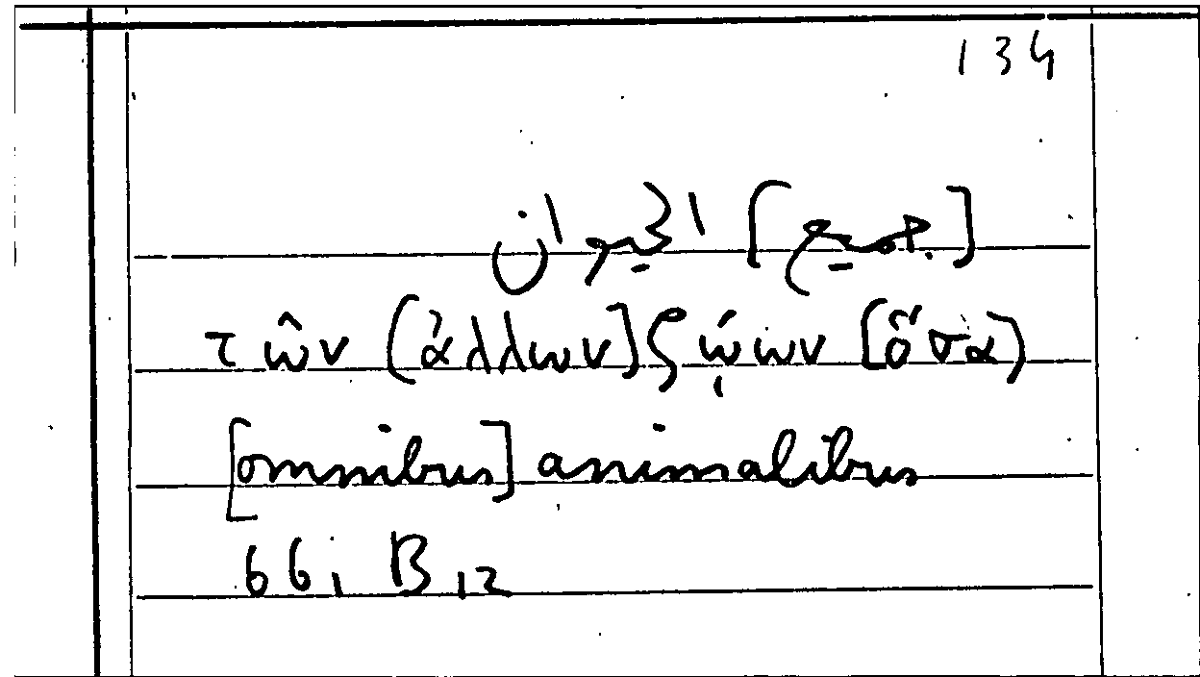 134
[جميع] الحيوان
τῶν (ἄλλων] ζῴων [ὅσα)
[omnibus] animalibus
66, B 12